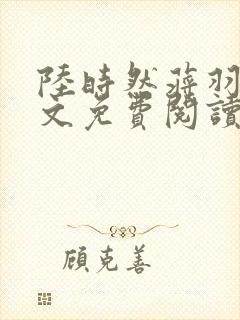 陸時然蒋羽
文免費閱讀
顧克善